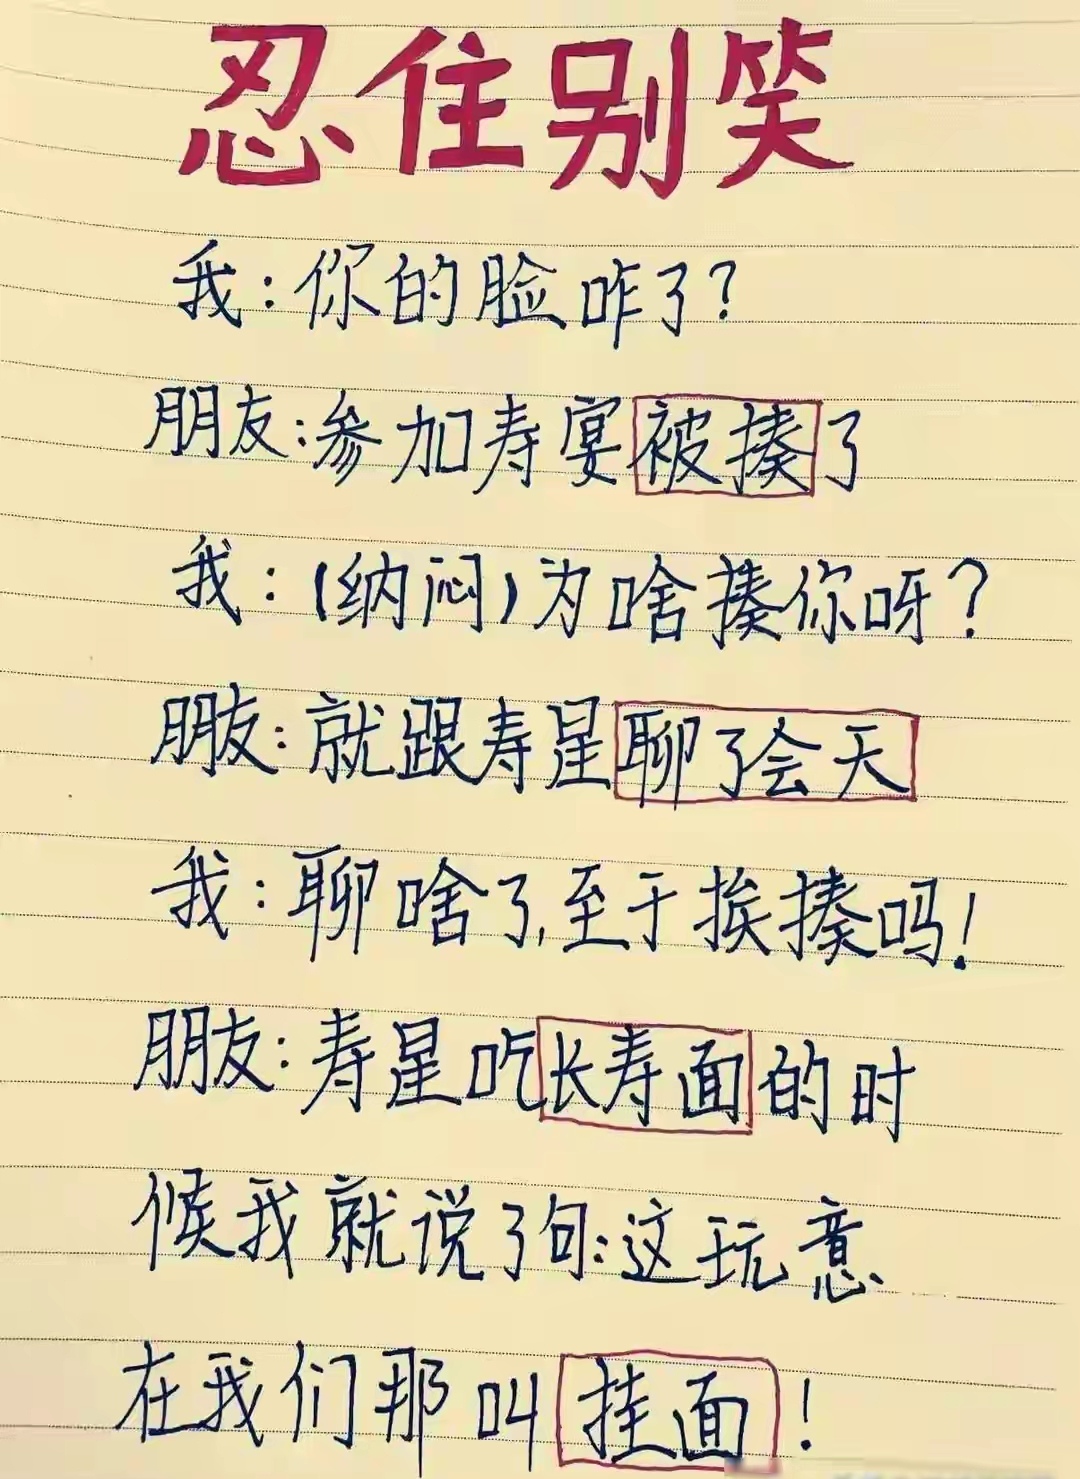 忍住别笑
我:你的脸咋了?
朋友:参加寿宴被揍了
我:(纳闷)为啥揍你呀?
朋友:就跟寿星聊了会天
我:聊啥了,至于挨揍吗!
朋友:寿星吃长寿面的时
候我就说了句:这玩意
在我们那叫挂面!